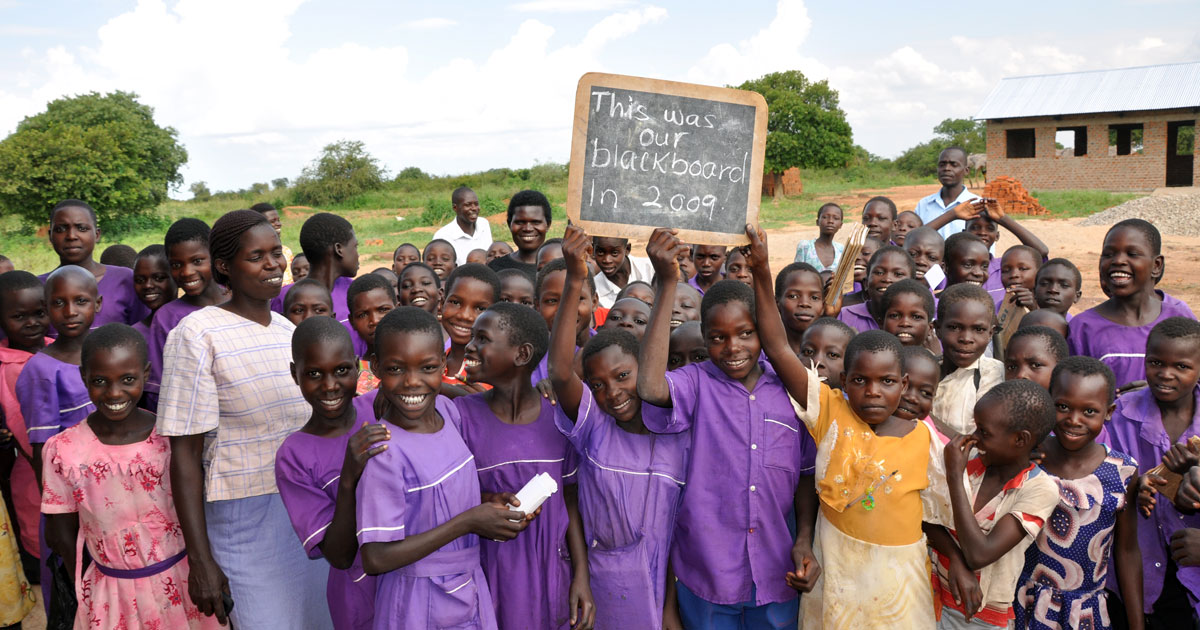 This was
our
blackboard
In 2009.